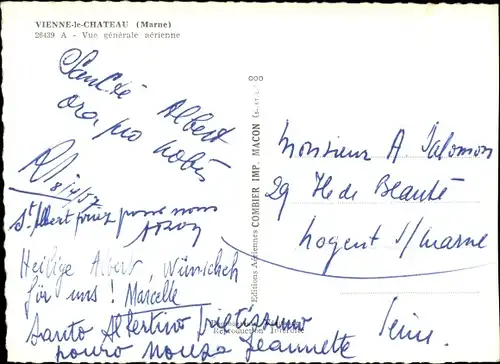 VIENNE-le-CHATEAU (Marne)
26439 A - Vue générale aérienne
Sancté Albert
ora pro nobis
8/4/57
St Albert priez pour nous
Heilige Albert, Wünschen
för uns! Marcelle
Santo Albertino
pouro Jeannette
Editions Aériennes COMBIER IMP. MACON
Reproduction Interdite
Monsieur A Salomon
29 Ile de Beauté
Nogent s/Marne
Seine.